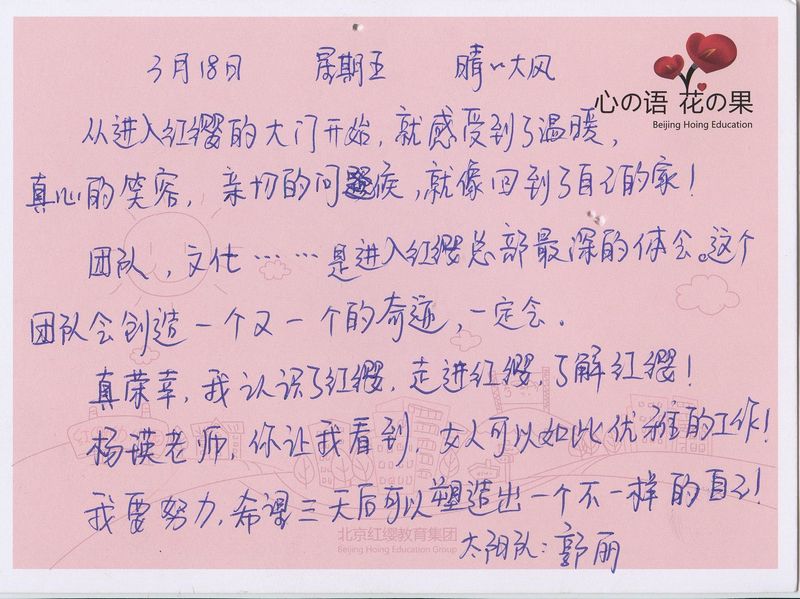 3月18日 星期五 晴以大风
心の语 花の果
Beijing Hoing Education
从进入红缨的大门开始，就感受到了温暖，
真心的笑容，亲切的问候，就像回到了自己的家！
团队，文化……是进入红缨总部最深的体会。这个
团队会创造一个又一个的奇迹，一定会．
真荣幸，我认识了红缨，走进红缨，了解红缨！
杨瑛老师，你让我看到，女人可以如此优雅的工作！
我要努力，希课三天后可以塑造出一个不一样的自己！
北京红缨教育集团
Beijing Hoing Education Group
太阳队：郭丽